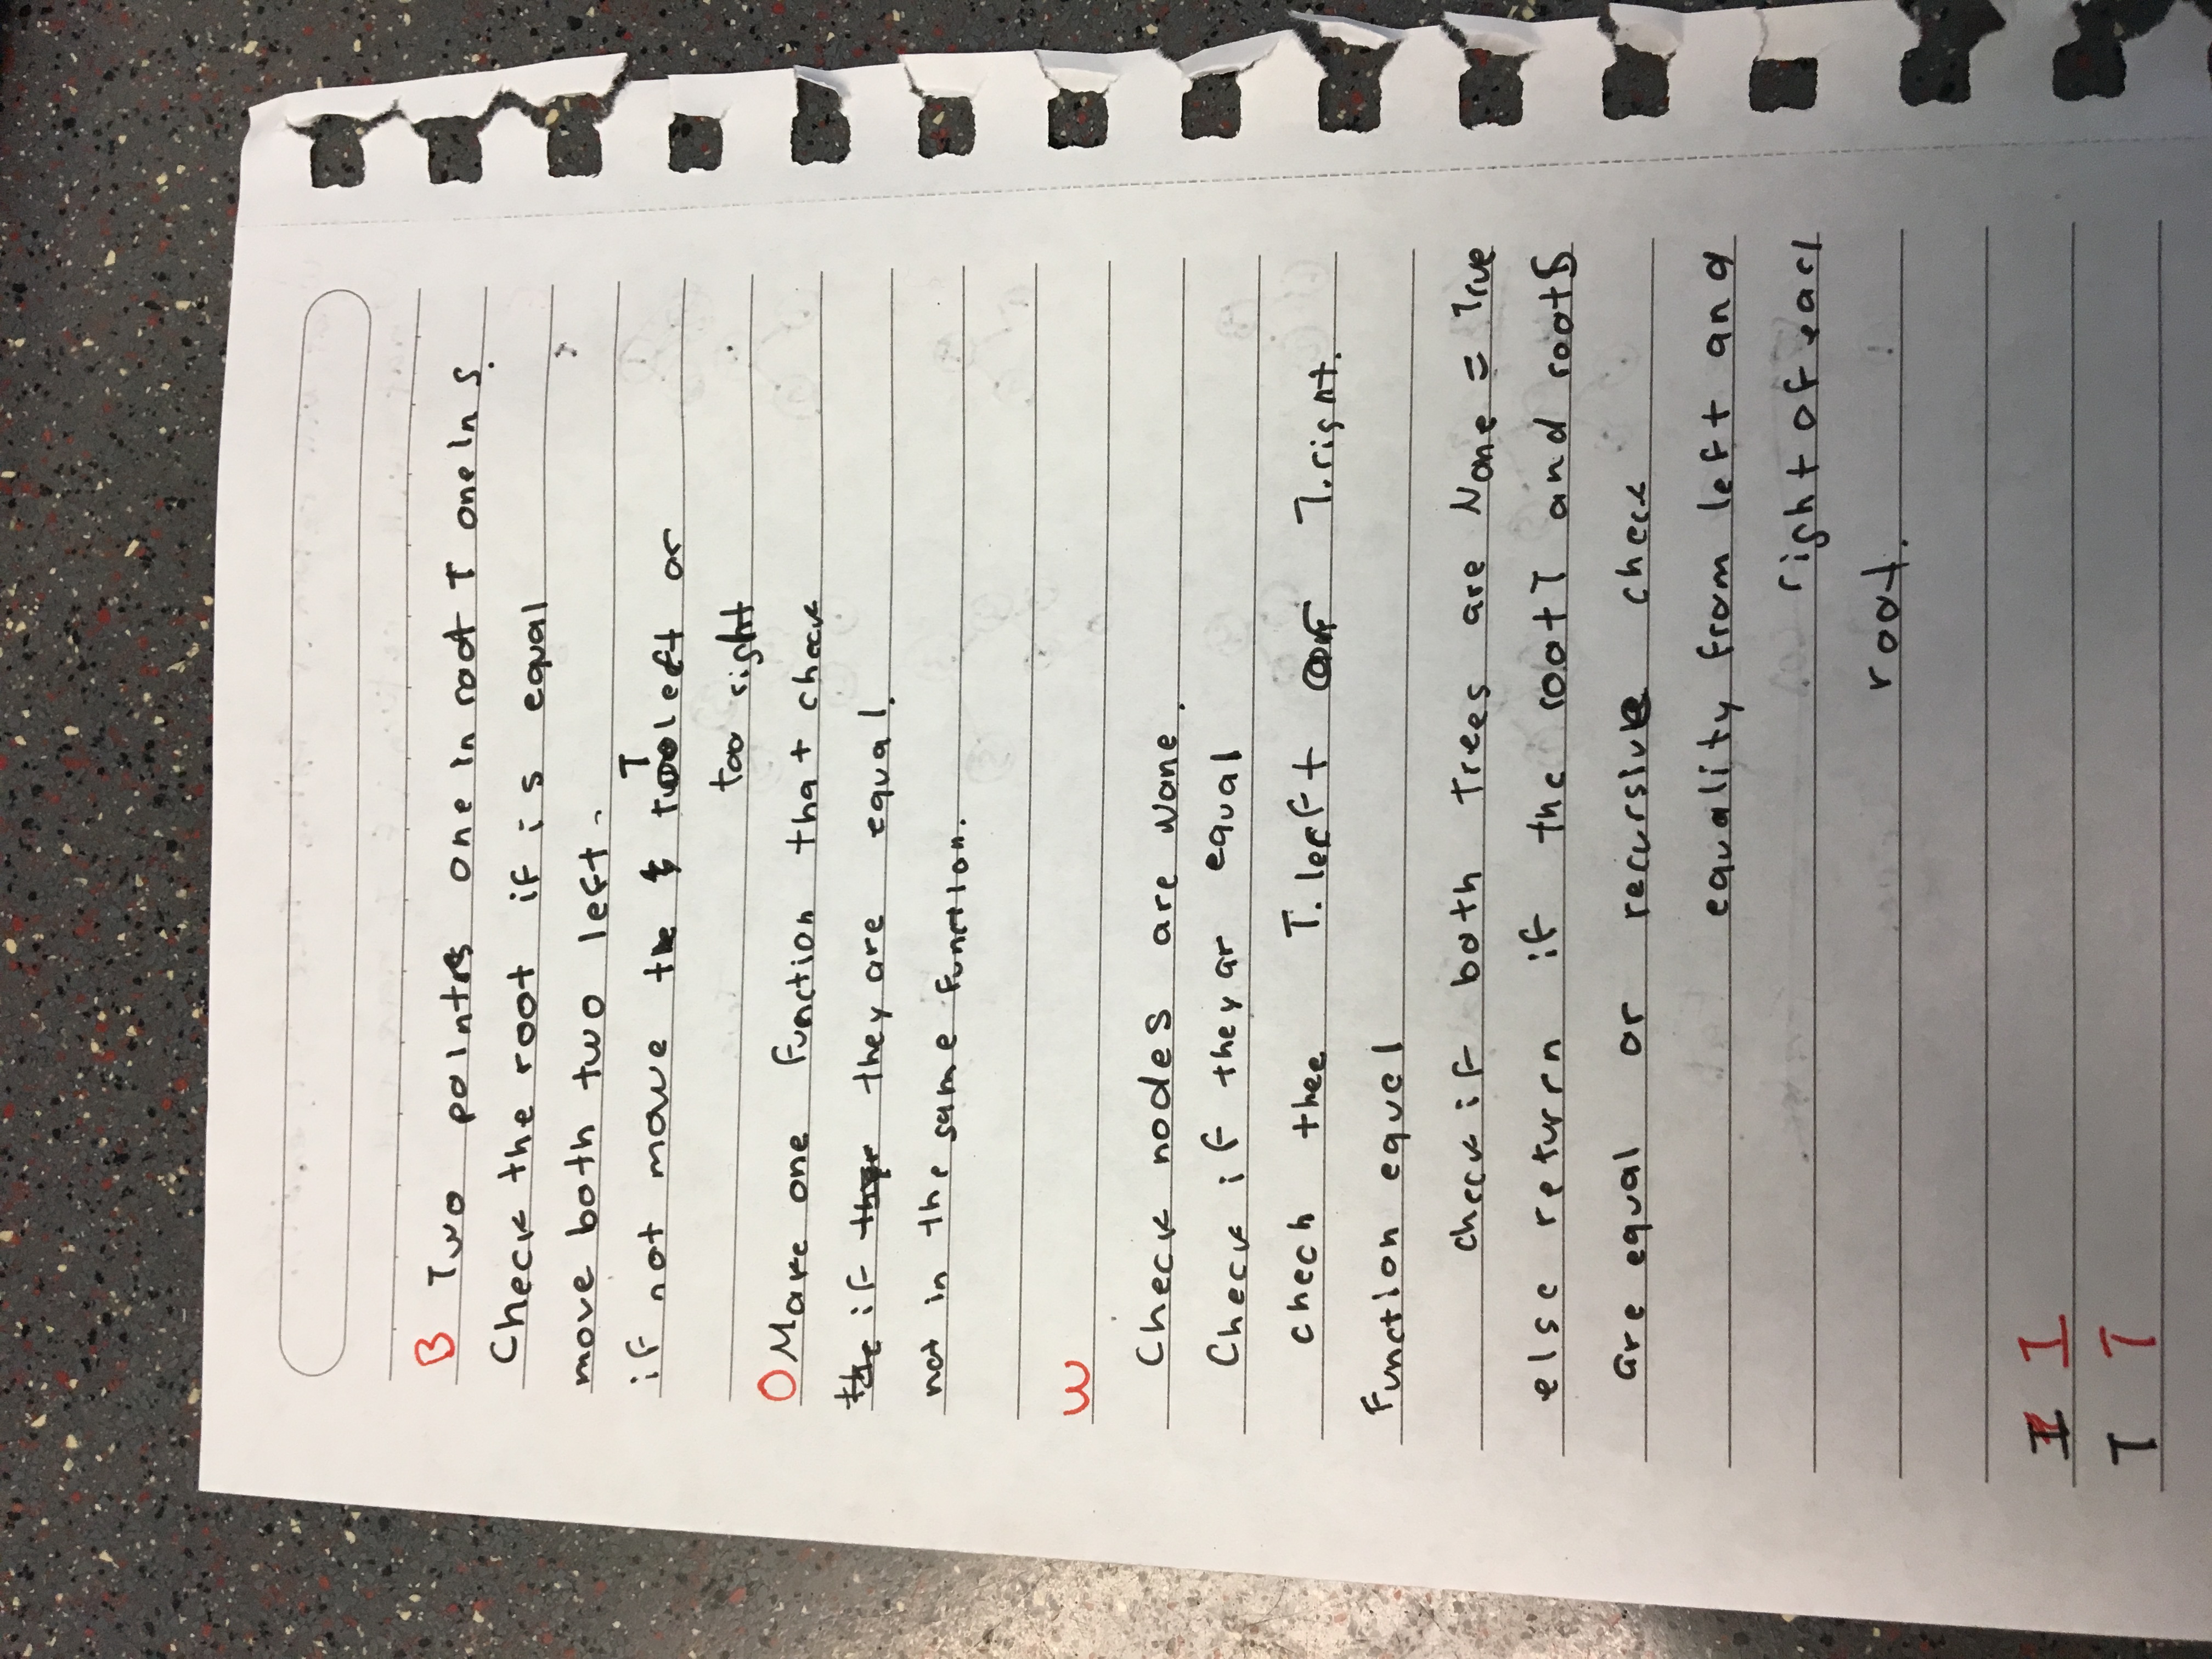 B Two pointrs one in root T one in S.
Check the root if is equal
move both two left.
if not move the T left or
too right
O Make one function that check
if they are equal.
not in the same function.
W
Check nodes are None.
Check if they ar equal
chech thee T.left or T.right.
Function equal
check if both trees are None = True
else returrn if the rootT and rootS
are equal or recursive check
equality from left and
right of each
root.
I I
T T